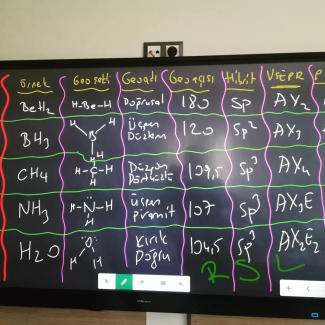 örnek Geo.şekli Geo.adı Geo.açısı Hibrit VSEPR
BeH2 H-Be-H Doğrusal 180 Sp AX2
BH3 H H B H Üçgen Düzlem 120 Sp² AX3
CH4 H H-C-H H Düzgün Dörtyüzlü 109,5 Sp³ AX4
NH3 H-N-H H üçgen piramit 107 Sp³ AX3E
H2O O H H Kırık Doğru 104,5 Sp³ AX2E2
R S L